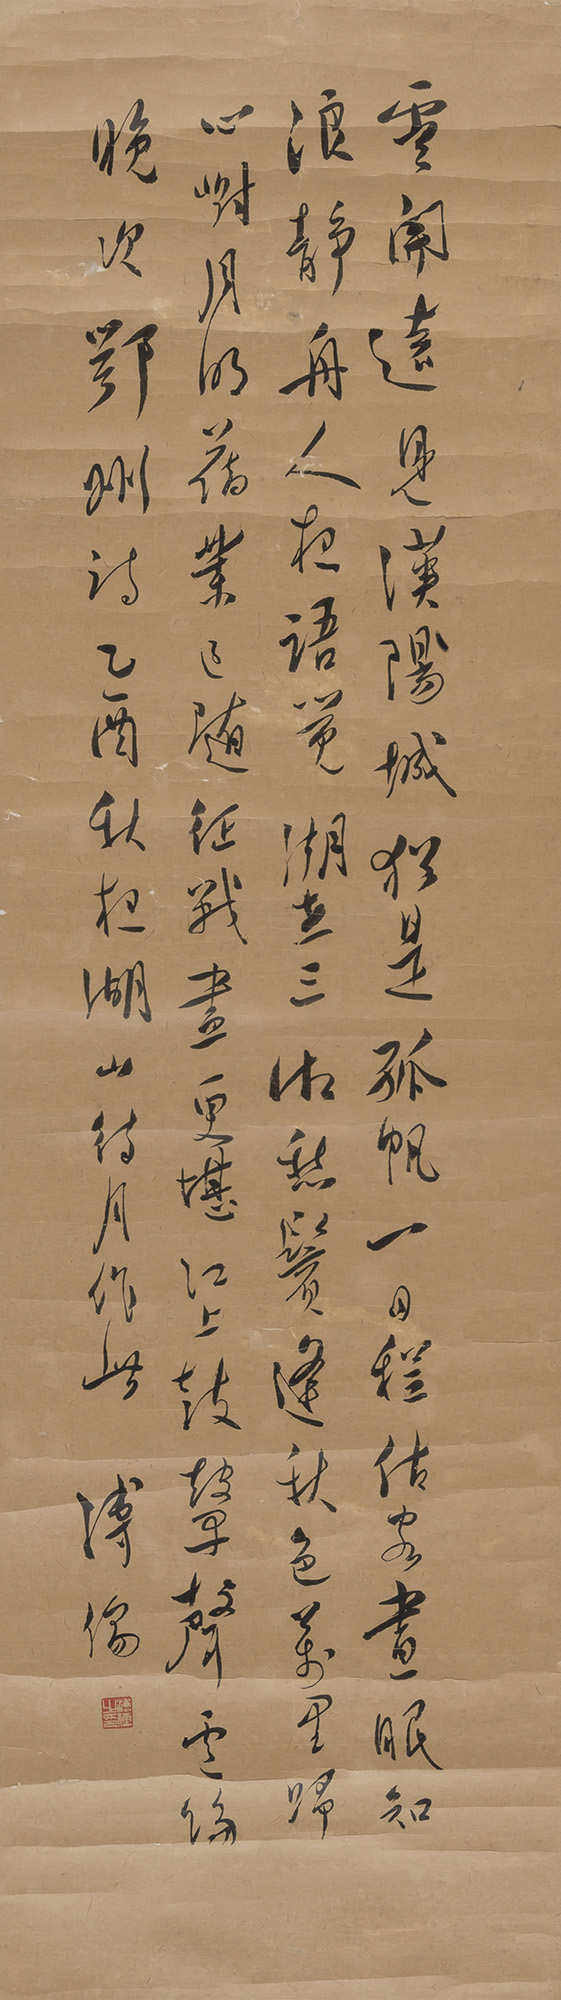 雲開遠見漢陽城猶是孤帆一日程估客晝眠知
浪靜舟人夜語覺湖生三湘愁鬢逢秋色萬里歸
心對月明舊業已隨征戰盡更堪江上鼓鼙聲盧綸
晚次鄂州詩乙酉秋夜湖山待月作此 溥傷